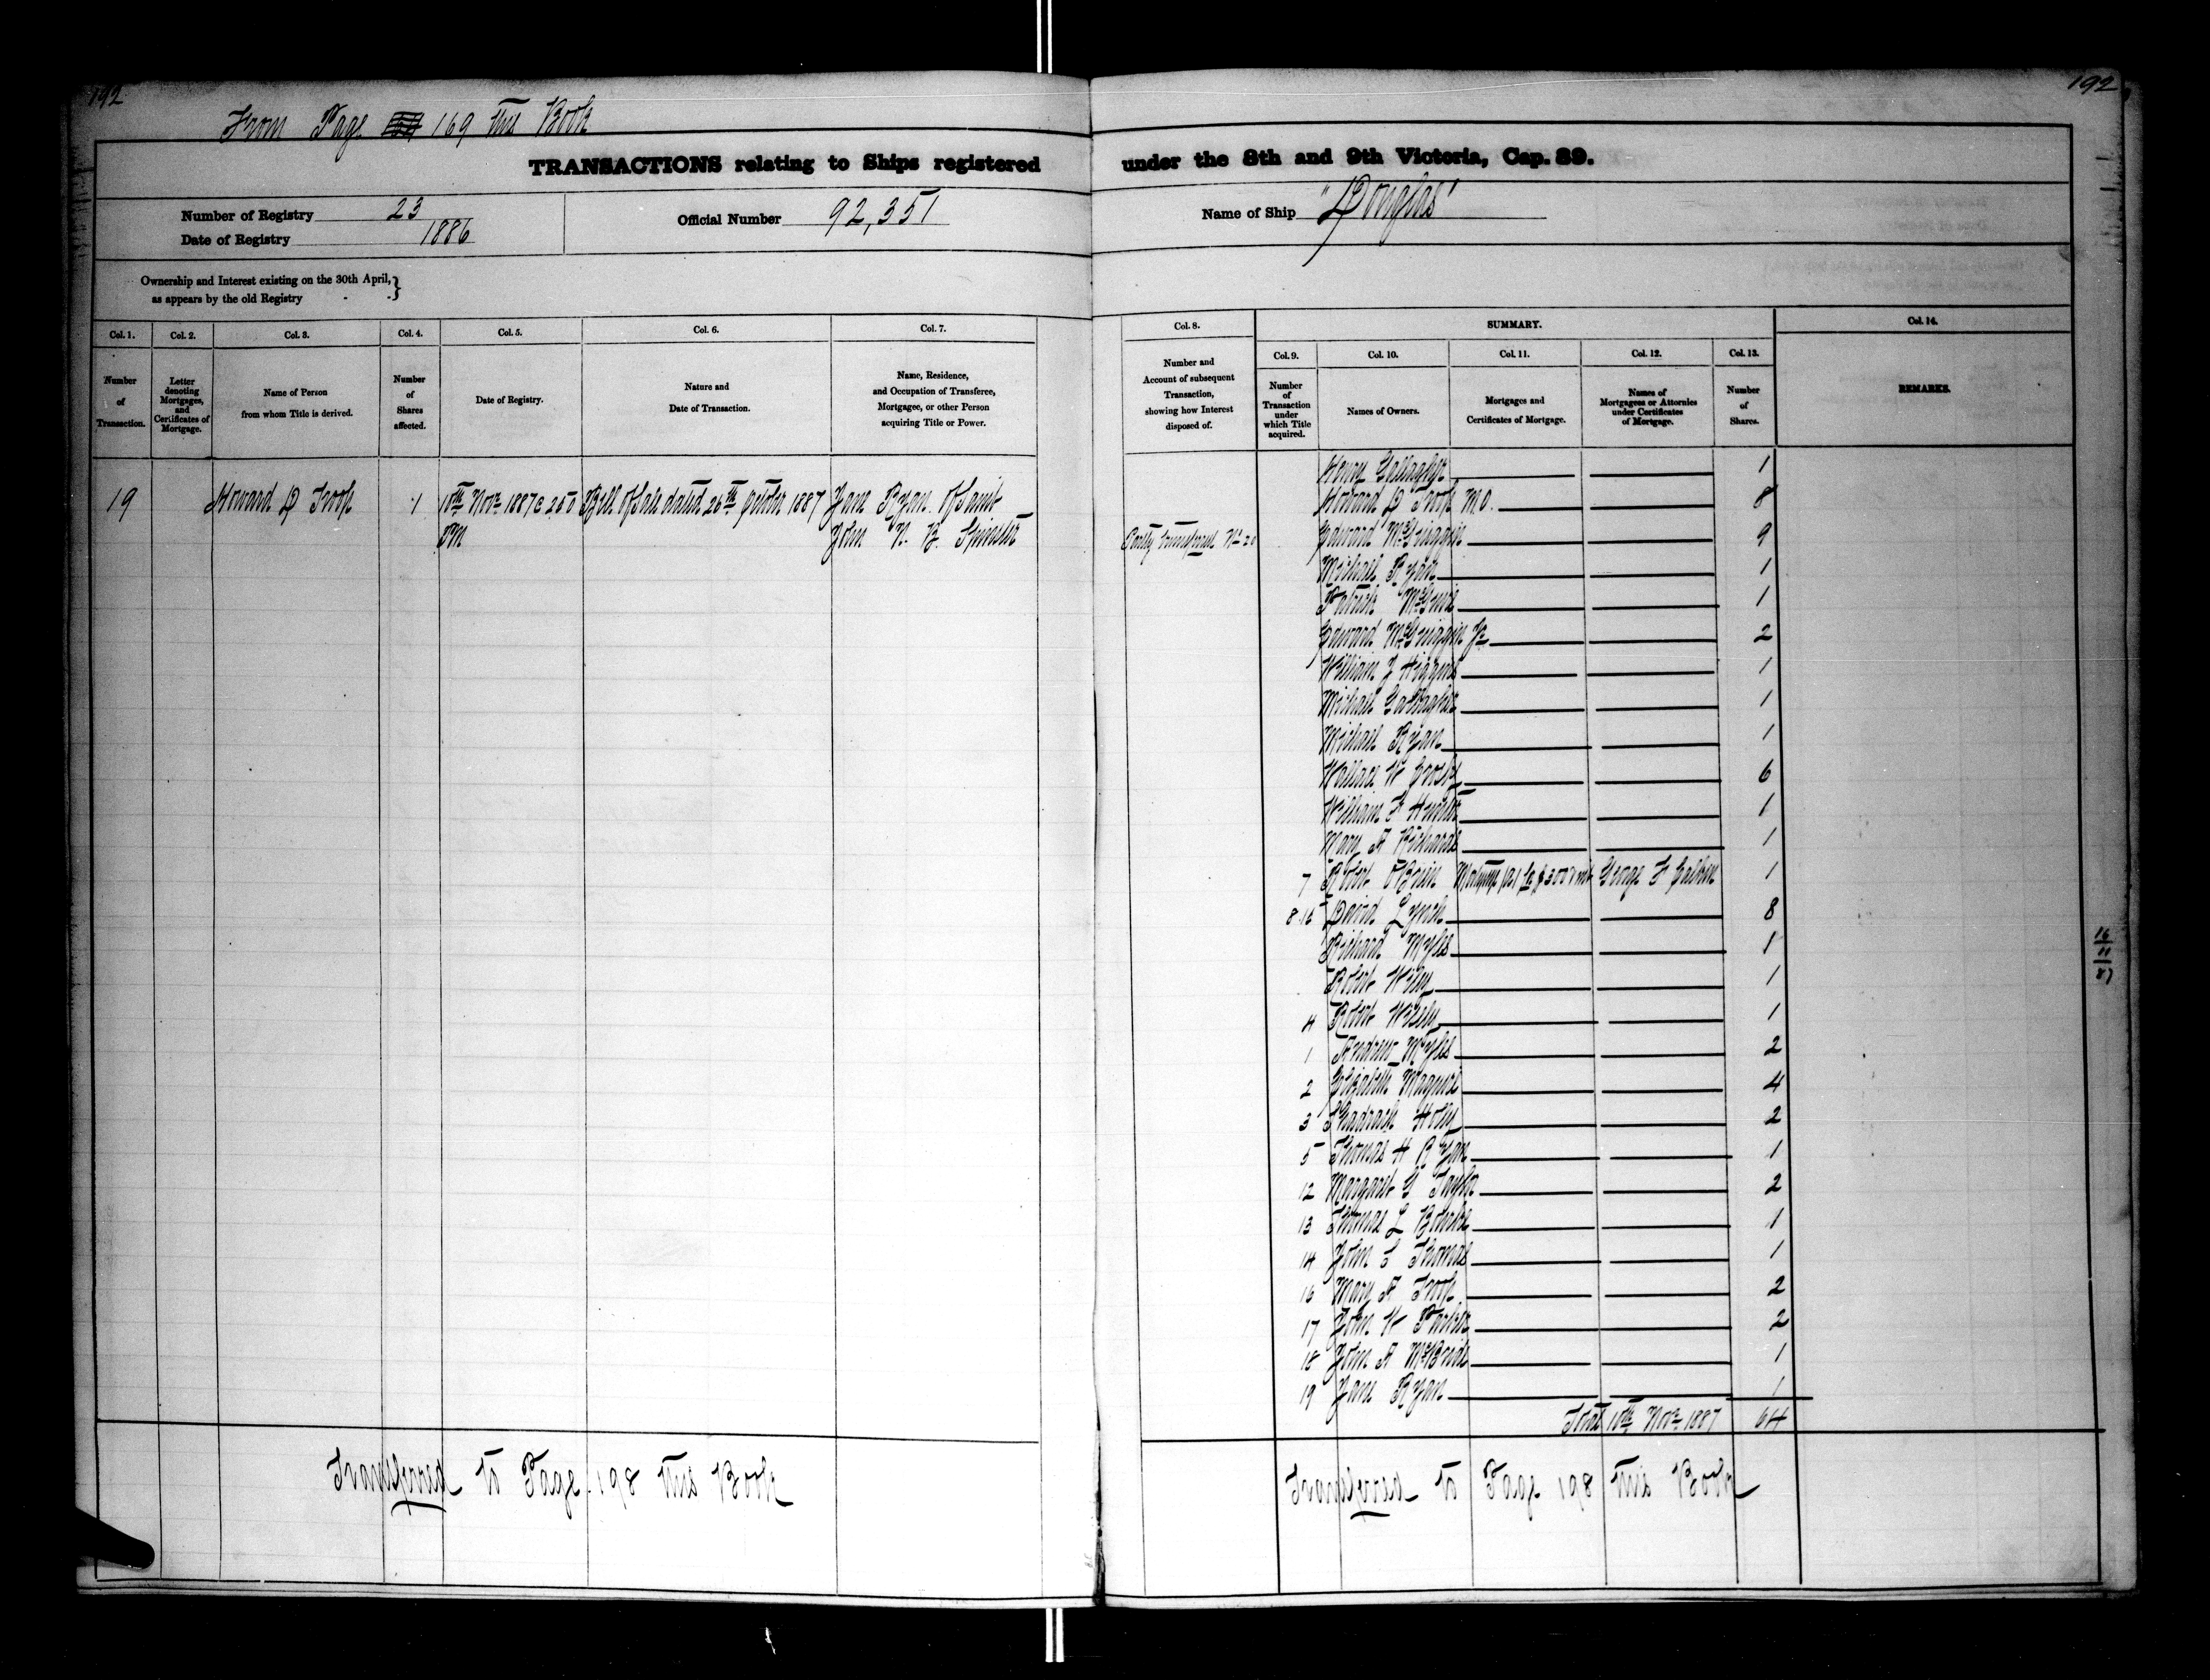 192
192
From Page 169 this Book
TRANSACTIONS relating to Ships registered under the 8th and 9th Victoria, Cap. 89.
Number of Registry 23
Date of Registry 1886
Official Number 92,351
Name of Ship "Douglas"
Ownership and Interest existing on the 30th April,}
as appears by the old Registry - -}
Col. 1. Col. 2. Col. 3. Col. 4. Col. 5. Col. 6. Col. 7.
Number of Transaction.
Letter denoting Mortgages, and Certificates of Mortgage.
Name of Person from whom Title is derived.
Number of Shares affected.
Date of Registry.
Nature and Date of Transaction.
Name, Residence, and Occupation of Transferee, Mortgagee, or other Person acquiring Title or Power.
19 Howard D Troop 1 10th Novr 1887 @ 2.50 Bill of Sale dated 26th October 1887 Jane Ryan of Saint
PM John N. B. Spinster
Transferred to Page 198 this Book
Col. 8. SUMMARY. Col. 14.
Col. 9. Col. 10. Col. 11. Col. 12. Col. 13.
Number and Account of subsequent Transaction, showing how Interest disposed of.
Number of Transaction under which Title acquired.
Names of Owners.
Mortgages and Certificates of Mortgage.
Names of Mortgagees or Attornies under Certificates of Mortgage.
Number of Shares.
REMARKS.
Henry Gallagher 1
Howard D Troop M.O. 8
Partly transferred No 20 Edward McGuiggin 9
Michael Ryan 1
Patrick 1
Edward McGuiggin Jr 2
William J Higgins 1
Michael Gallagher 1
Michael Ryan 1
Wallace W 6
William F 1
Mary A Richards 1
7 Robert O'Brien Mortgage George F 1
8.15 David Lynch 8
Richard Myles 1
Robert 1
4 Robert 1
1 Andrew Myles 2
2 Elizabeth Magnus 4
3 Shadrach Holly 2
5 Thomas H Ryan 1
12 Margaret G Taylor 2
13 Thomas L Bourke 1
14 John S Thomas 1
16 Mary A Troop 2
17 John W Parker 2
18 John A McBride 1
19 Jane Ryan 1
Total 10th Novr 1887 64
Transferred to Page 198 this Book
16
11
87